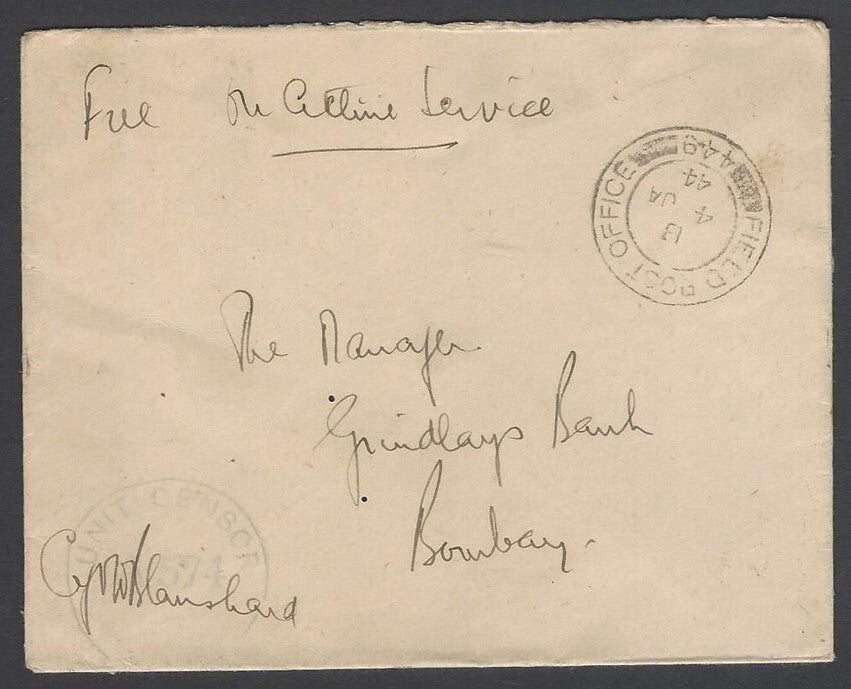 Free On Active Service
FIELD POST OFFICE
449
13
4 JA
44
The Manager
Grindlays Bank
Bombay.
UNIT CENSOR
574
Blanshard